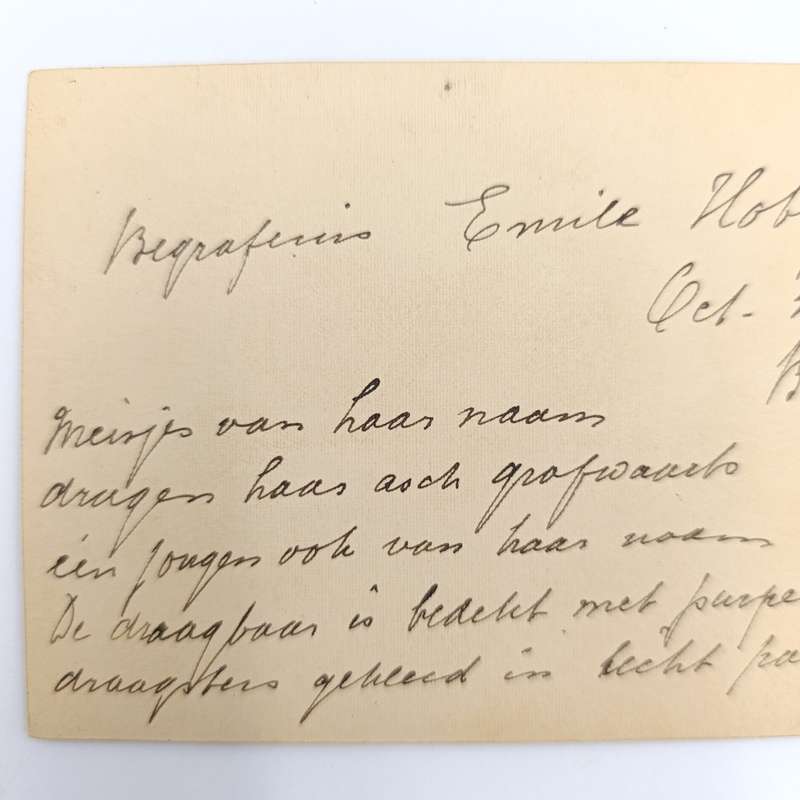 Begrafenis Emile Hob
Oct.
Meisjes van haar naam
dragen haar asch grafwaarts
één jongen ook van haar naam
De draagbaar is bedekt met purpe
draagsters gekleed in licht pa